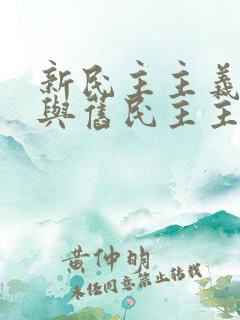 新民主主義
與舊民主主
黄仲明
未經同意禁止轉載